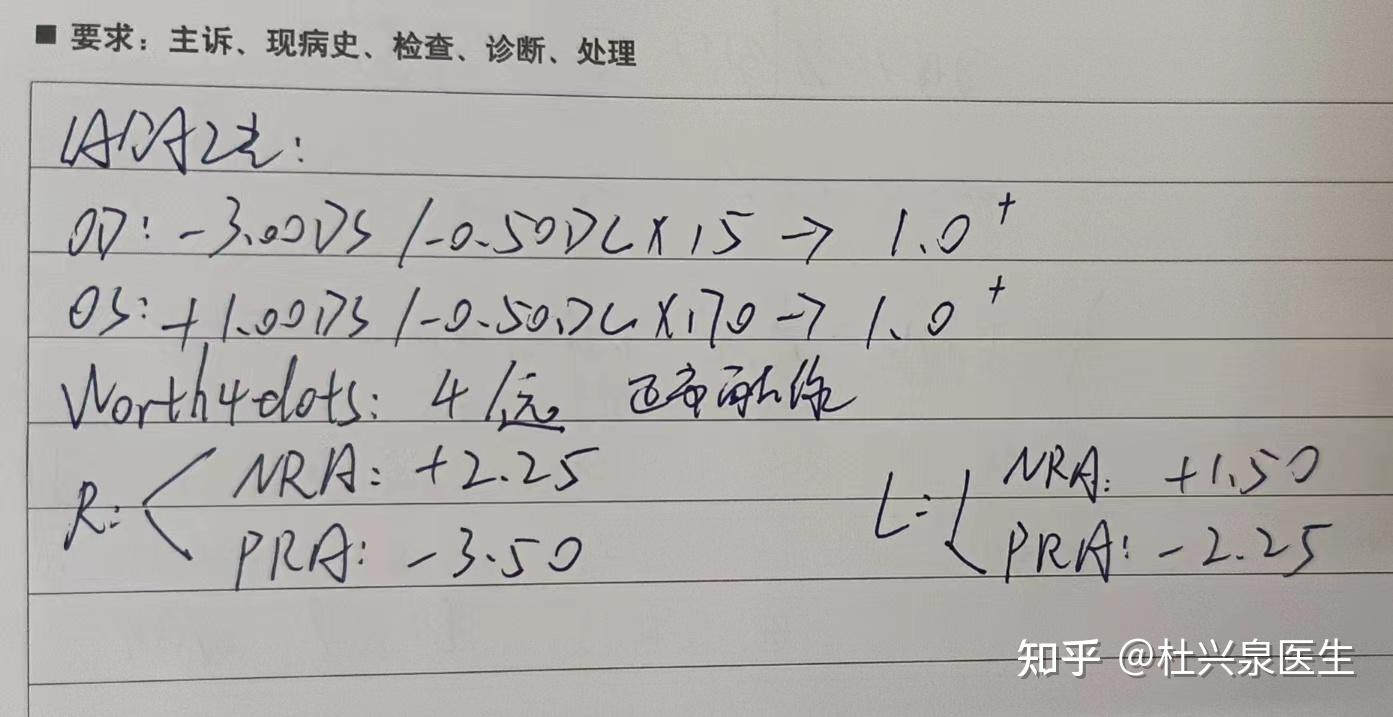 ■ 要求：主诉、现病史、检查、诊断、处理
OD: -3.00DS /-0.50DC×15 → 1.0⁺
OS: +1.00DS /-0.50DC×170 → 1.0⁺
Worth4dots: 4/远
R: NRA: +2.25
PRA: -3.50
L: NRA: +1.50
PRA: -2.25
知乎 @杜兴泉医生